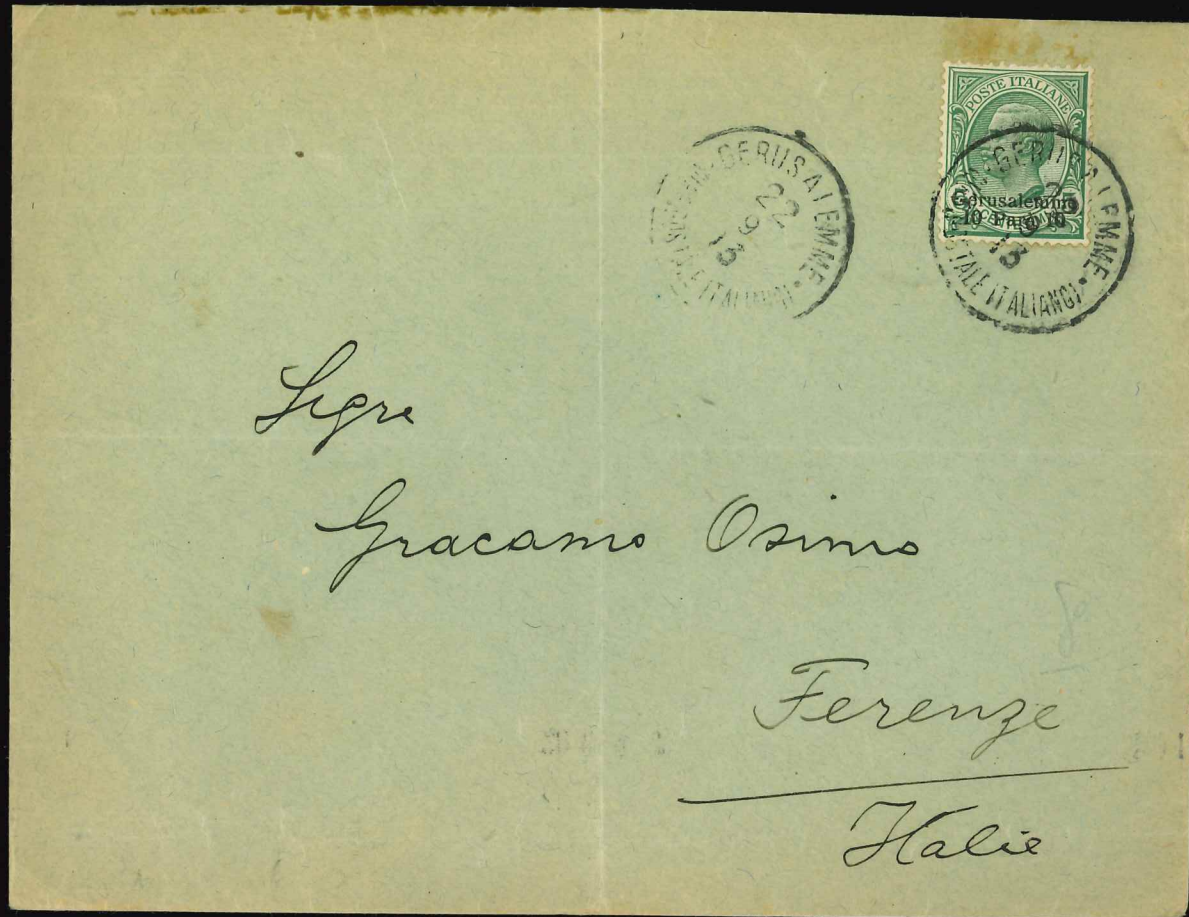 POSTE ITALIANE
Gerusalemme
10 Para 10
GERUSALEMME
22
9
13
POSTALE ITALIANO)
GERUSALEMME
22
9
13
POSTALE ITALIANO)
Sigre
Gracamo Osimo
Ferenze
Italie